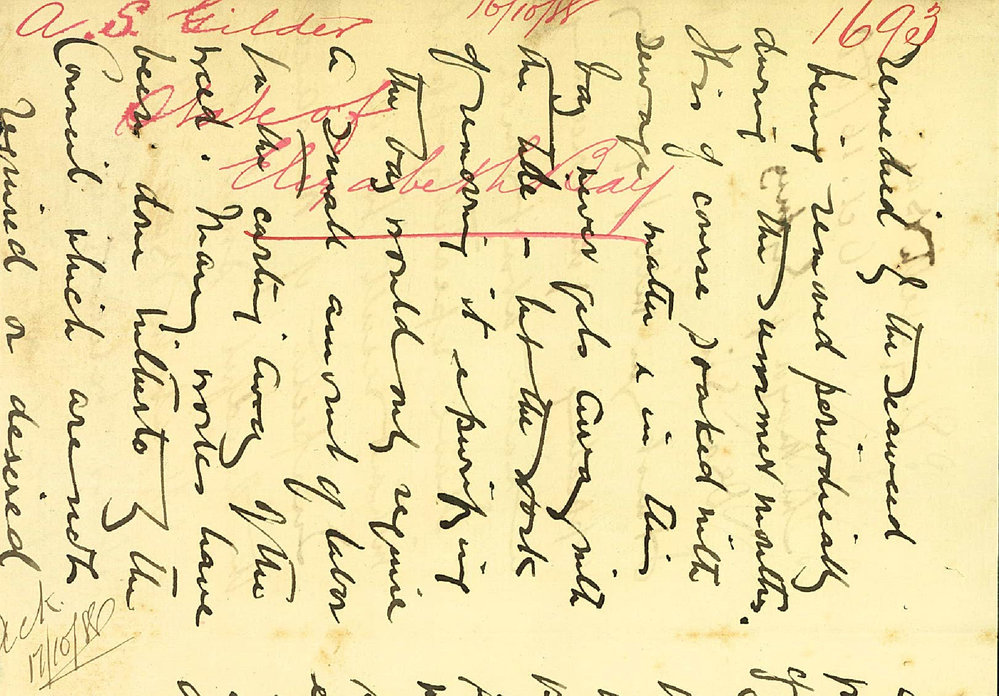 A. S. Gilder
10/10/88
1693
State of
Elizabeth Bay
remedied by the seaweed
being removed periodically
during the summer months.
It is of course soaked with
sewage matter & in this
bay never gets away with
the tide - but the work
of removing it & purifying
the bay would only require
a small amount of labor
for the carting away of the
weed. Many works have
been done hitherto by the
Council which are not
required or desired
Ack.
17/10/88